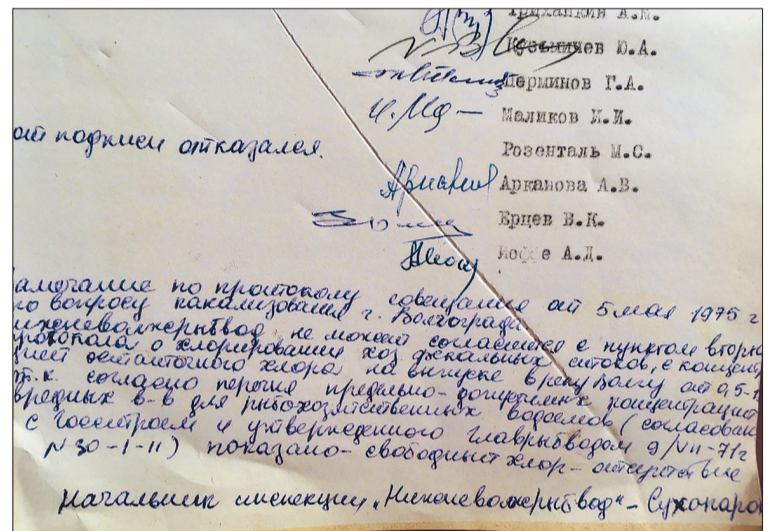 Труханкин А.М.
Кузьмичев Ю.А.
Перминов Г.А.
Маликов И.И.
от подписи отказался.
Розенталь М.С.
Арканова А.В.
Ерцев В.К.
Иоффе А.Д.
замечание по протоколу совещания от 5 мая 1975 г
по вопросу канализования г. Волгограда
не может согласиться с пунктом вторым
протокола о хлорировании хоз фекальных стоков, с концент
остаточного хлора на выпуске в реку Волгу от 0,5-1
т.к. согласно перечня предельно-допустимых концентраций
вредных в-в для рыбохозяйственных водоемов (согласован
с Госстроем и утвержденного Главрыбводом 9/VII-71г
N 30-1-11) показано - свободный хлор - отсутствие
Начальник инспекции „Нижневолжрыбвод" - Сухопаро